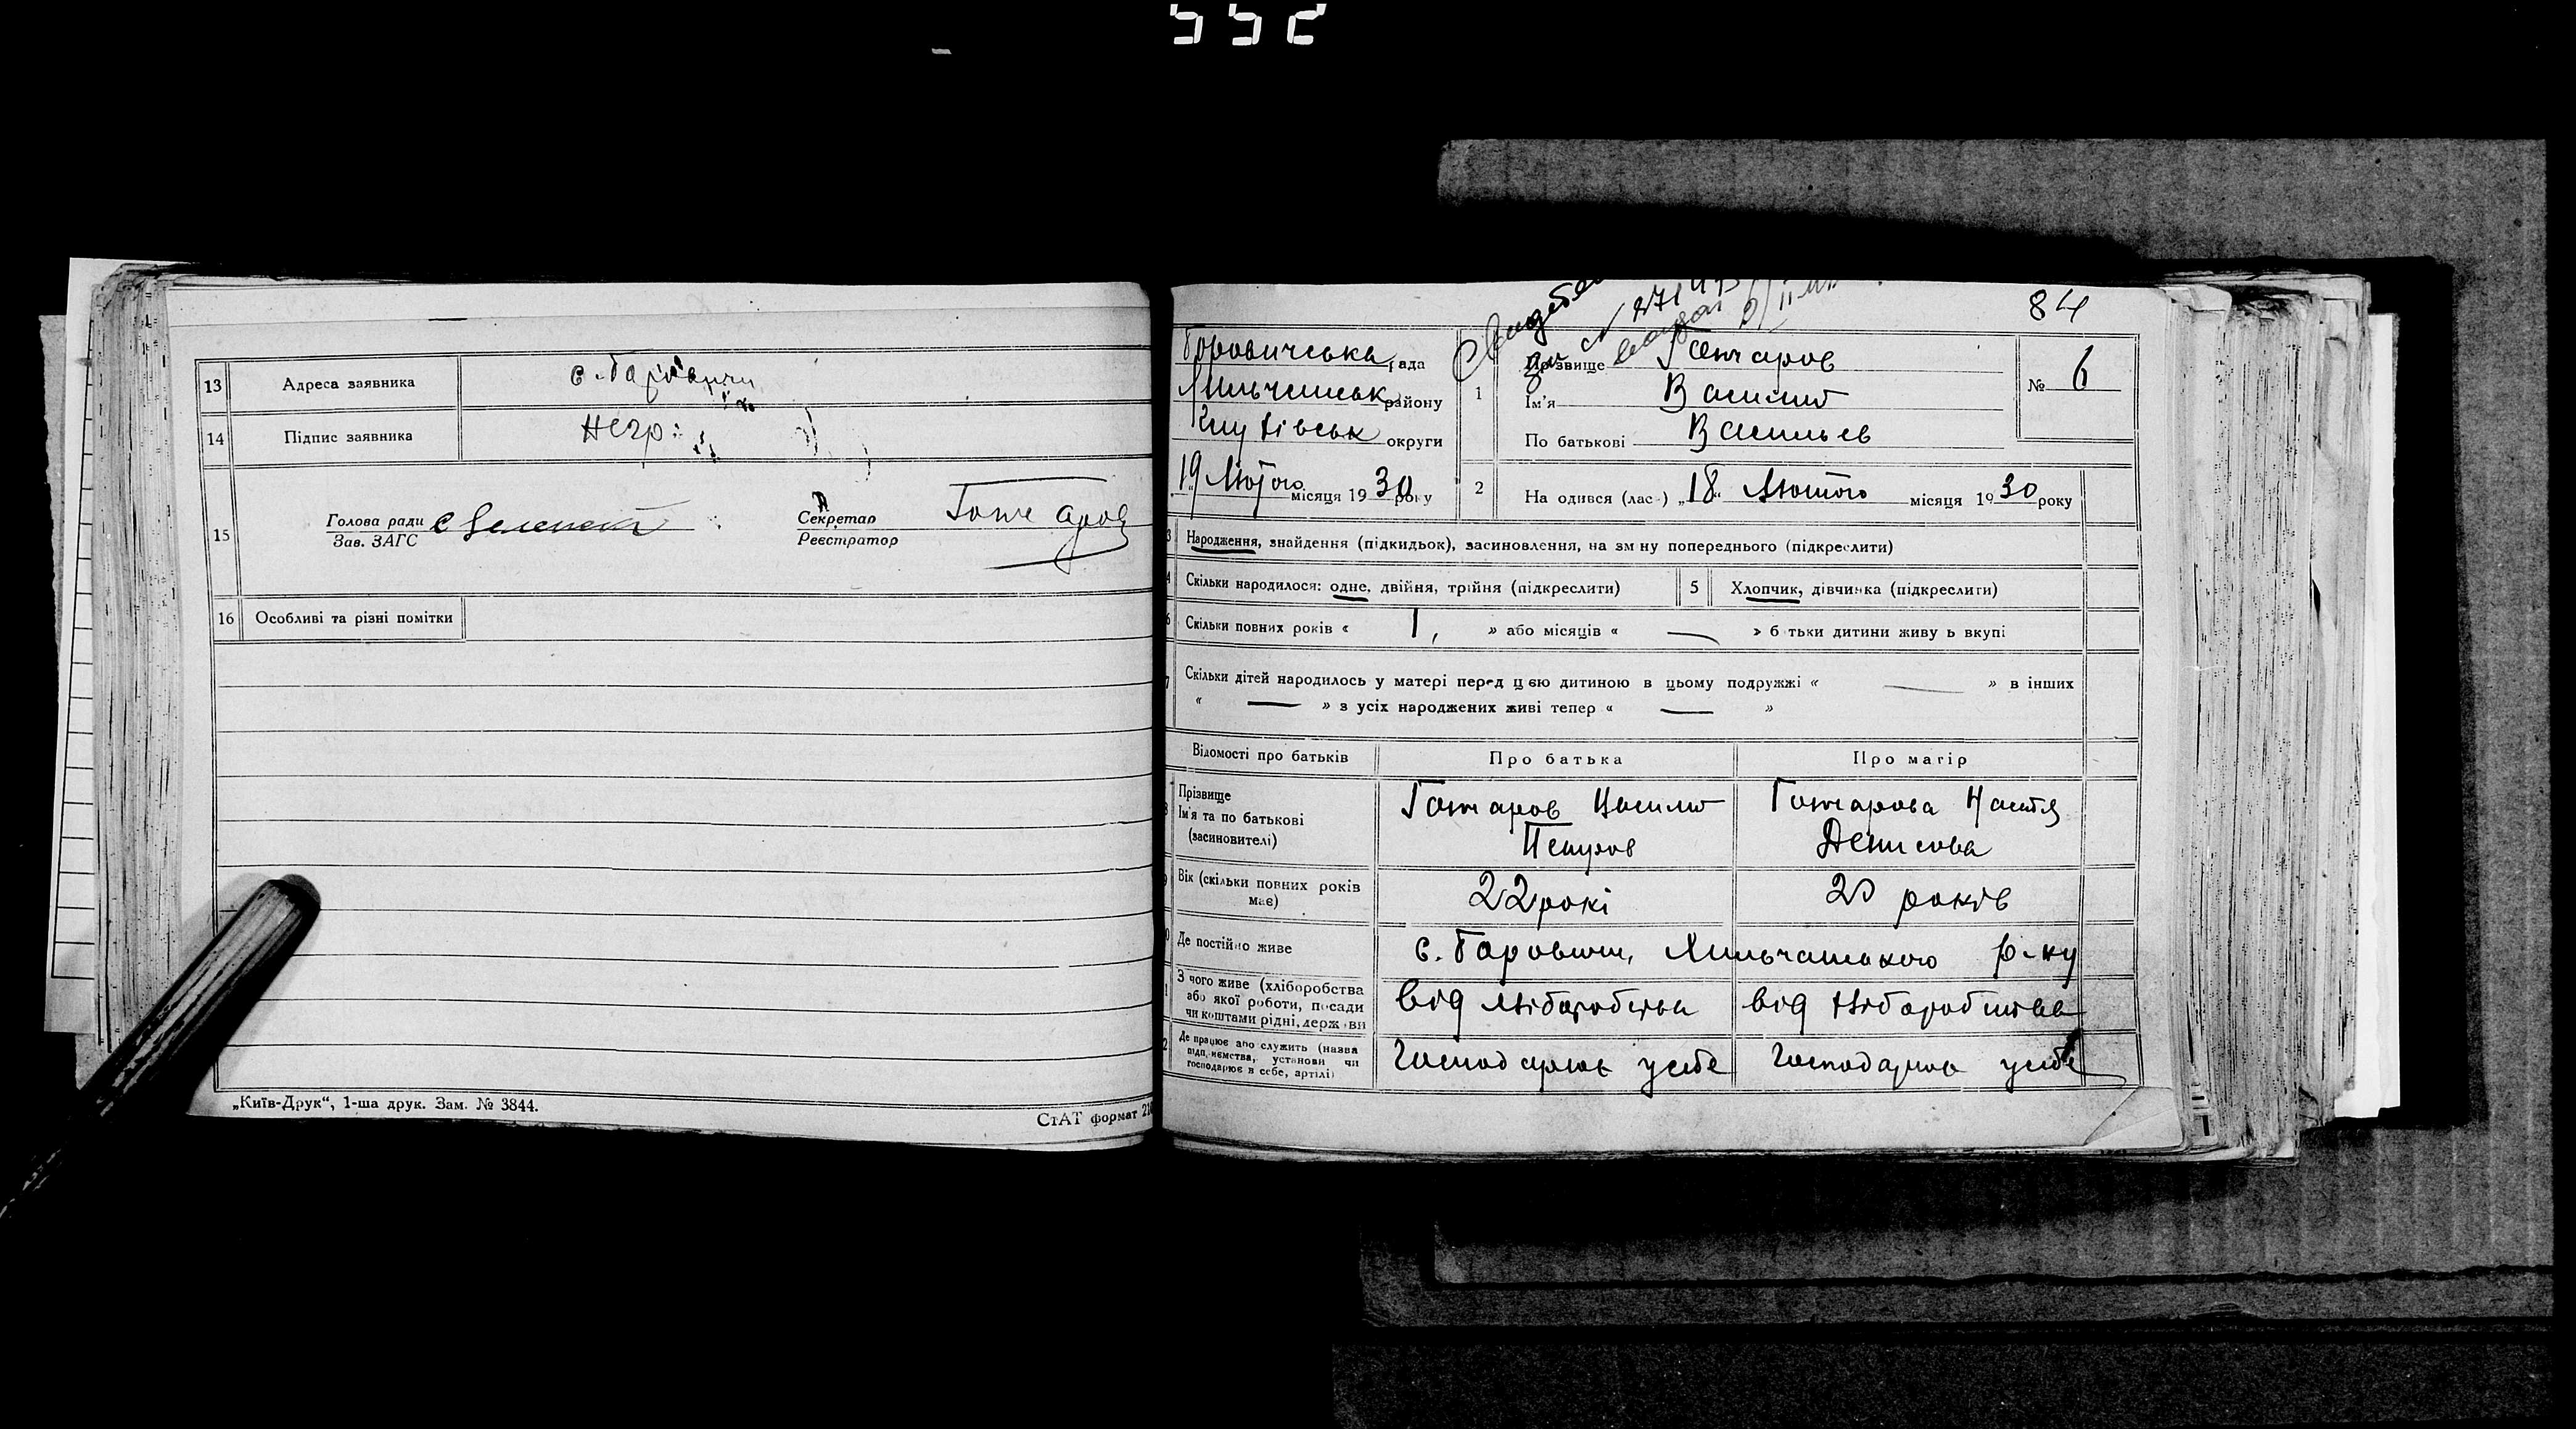 552
13 Адреса заявника с. Боровичи
14 Підпис заявника Негр:
15 Голова ради
Зав. ЗАГС
Секретар Гончаров
Реєстратор
16 Особливі та різні помітки
„Київ-Друк“, 1-ша друк. Зам. № 3844.
СтАТ формат
84
Боровичська рада
Хильчицьк району
Глухівськ округи
19 Лютого місяця 1930 року
1 Прізвище Гончаров
Ім'я Василь
По батькові Васильев
№ 6
2 На одився (лас.) „18“ Лютого місяця 1930 року
3 Народження, знайдення (підкидьок), засиновлення, на зм ну попереднього (підкреслити)
4 Скільки народилося: одне, двійня, трійня (підкреслити)
5 Хлопчик, дівчинка (підкреслити)
6 Скільки повних років « 1, » або місяців « — » б тьки дитини живу ь вкупі
7 Скільки дітей народилось у матері перед цією дитиною в цьому подружжі « — » в інших
« — » з усіх народжених живі тепер « — »
Відомості про батьків Про батька Про матір
8 Прізвище
Ім'я та по батькові
(засновителі)
Гончаров Василь
Петров
Гончарова Настя
Денисова
9 Вік (скільки повних років має) 22 рокі 20 років
10 Де постійно живе с. Боровичи, р-ну
11 З чого живе (хліборобства
або якої роботи, посади
чи коштами рідні, держ ви
від хліборобства від хліборобства
12 Де працює або служить (назва
підп, иємства, установи чи
господарює в себе, артілі)
Господарює у себе Господарює у себе